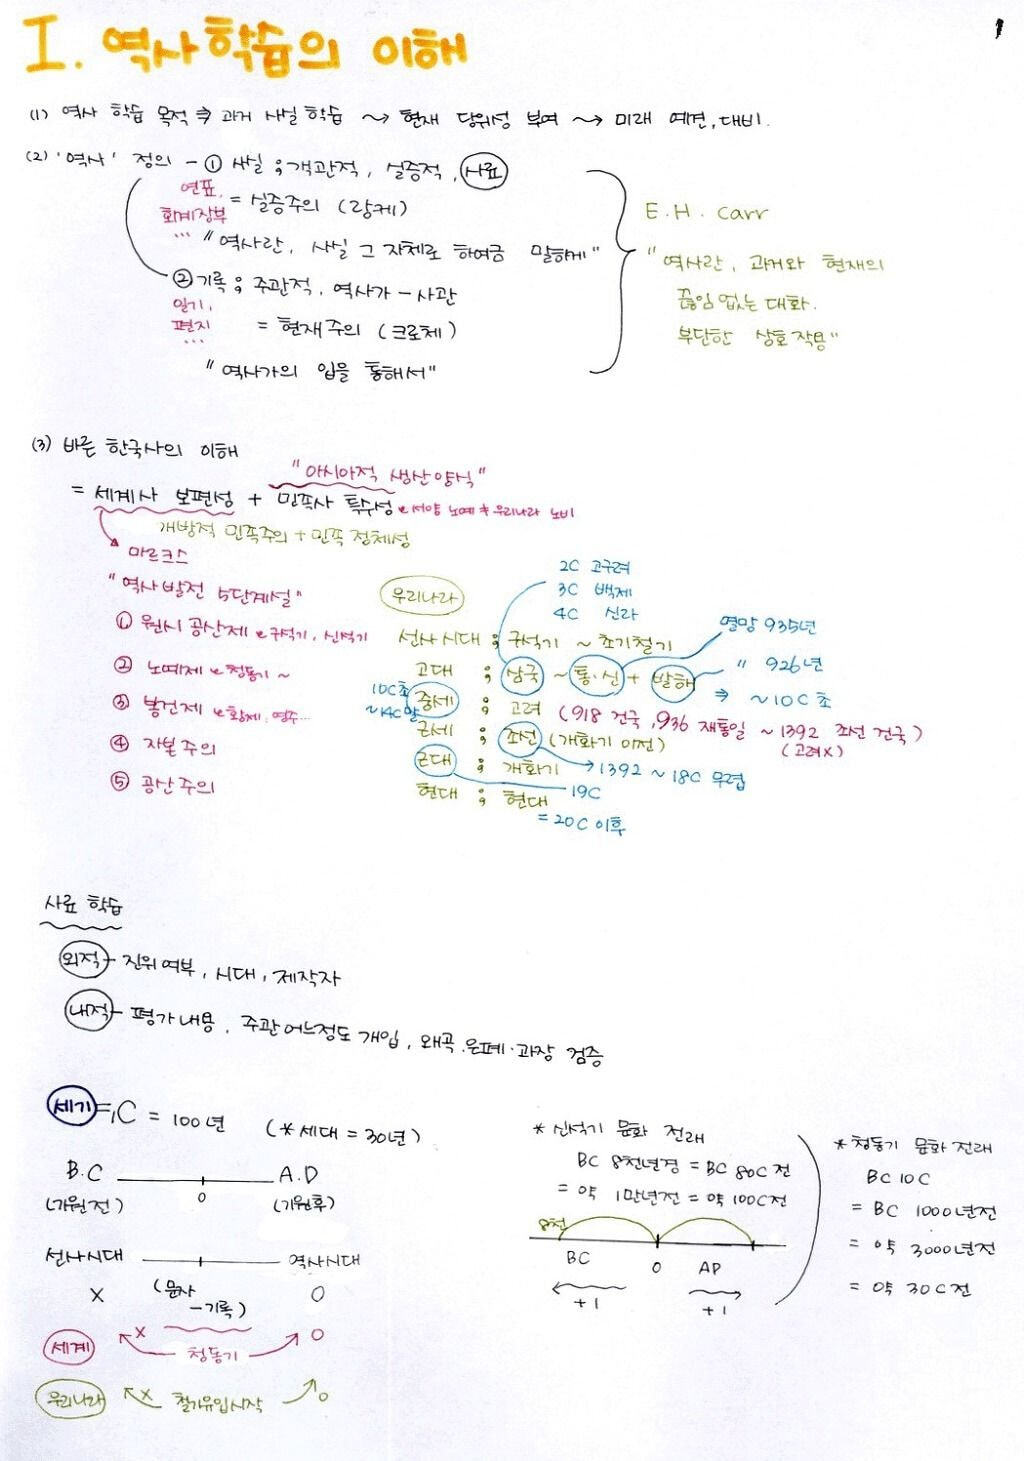 1
I. 역사 학습의 이해
(1) 역사 학습 목적 ⇒ 과거 사실 학습 ~> 현재 당위성 부여 ~> 미래 예견, 대비.
(2) '역사' 정의 - ① 사실 ; 객관적, 실증적, 사료
연표,
회계장부
...
= 실증주의 (랑케)
"역사란, 사실 그 자체로 하여금 말하게"
② 기록 ; 주관적, 역사가 - 사관
일기,
편지
...
= 현재주의 (크로체)
"역사가의 입을 통해서"
E.H. carr
"역사란, 과거와 현재의
끊임 없는 대화.
부단한 상호작용"
(3) 바른 한국사의 이해
"아시아적 생산양식"
= 세계사 보편성 + 민족사 특수성 e 서양 노예 ≠ 우리나라 노비
개방적 민족주의 + 민족 정체성
마르크스
"역사발전 5단계설"
① 원시 공산제 e 구석기, 신석기
② 노예제 e 청동기 ~
③ 봉건제 e 황제, 영주...
④ 자본주의
⑤ 공산주의
우리나라
2C 고구려
3C 백제
4C 신라
선사시대 ; 구석기 ~ 초기철기
멸망 935년
고대 ; 삼국 ~ 통·신 + 발해
" 926년
⇒ ~10C 초
10C초
~14C말
중세 ; 고려 (918 건국, 936 재통일 ~ 1392 조선 건국)
(고려X)
근세 ; 조선 (개화기 이전)
→ 1392 ~ 18C 무렵
근대 ; 개화기
19C
현대 ; 현대
= 20C 이후
사료 학습
외적 - 진위여부, 시대, 제작자
내적 - 평가내용, 주관 어느정도 개입, 왜곡·은폐·과장 검증
세기 = 1C = 100년 (*세대 = 30년)
B.C A.D
0
(기원전) (기원후)
선사시대 역사시대
X (문자 O
-기록)
세계 X 청동기 O
우리나라 X 철기유입시작 O
* 신석기 문화 전래
BC 8천년경 = BC 80C 전
= 약 1만년전 = 약 100C전
8천
BC 0 AP
+1 +1
* 청동기 문화 전래
BC 10C
= BC 1000년전
= 약 3000년전
= 약 30C 전